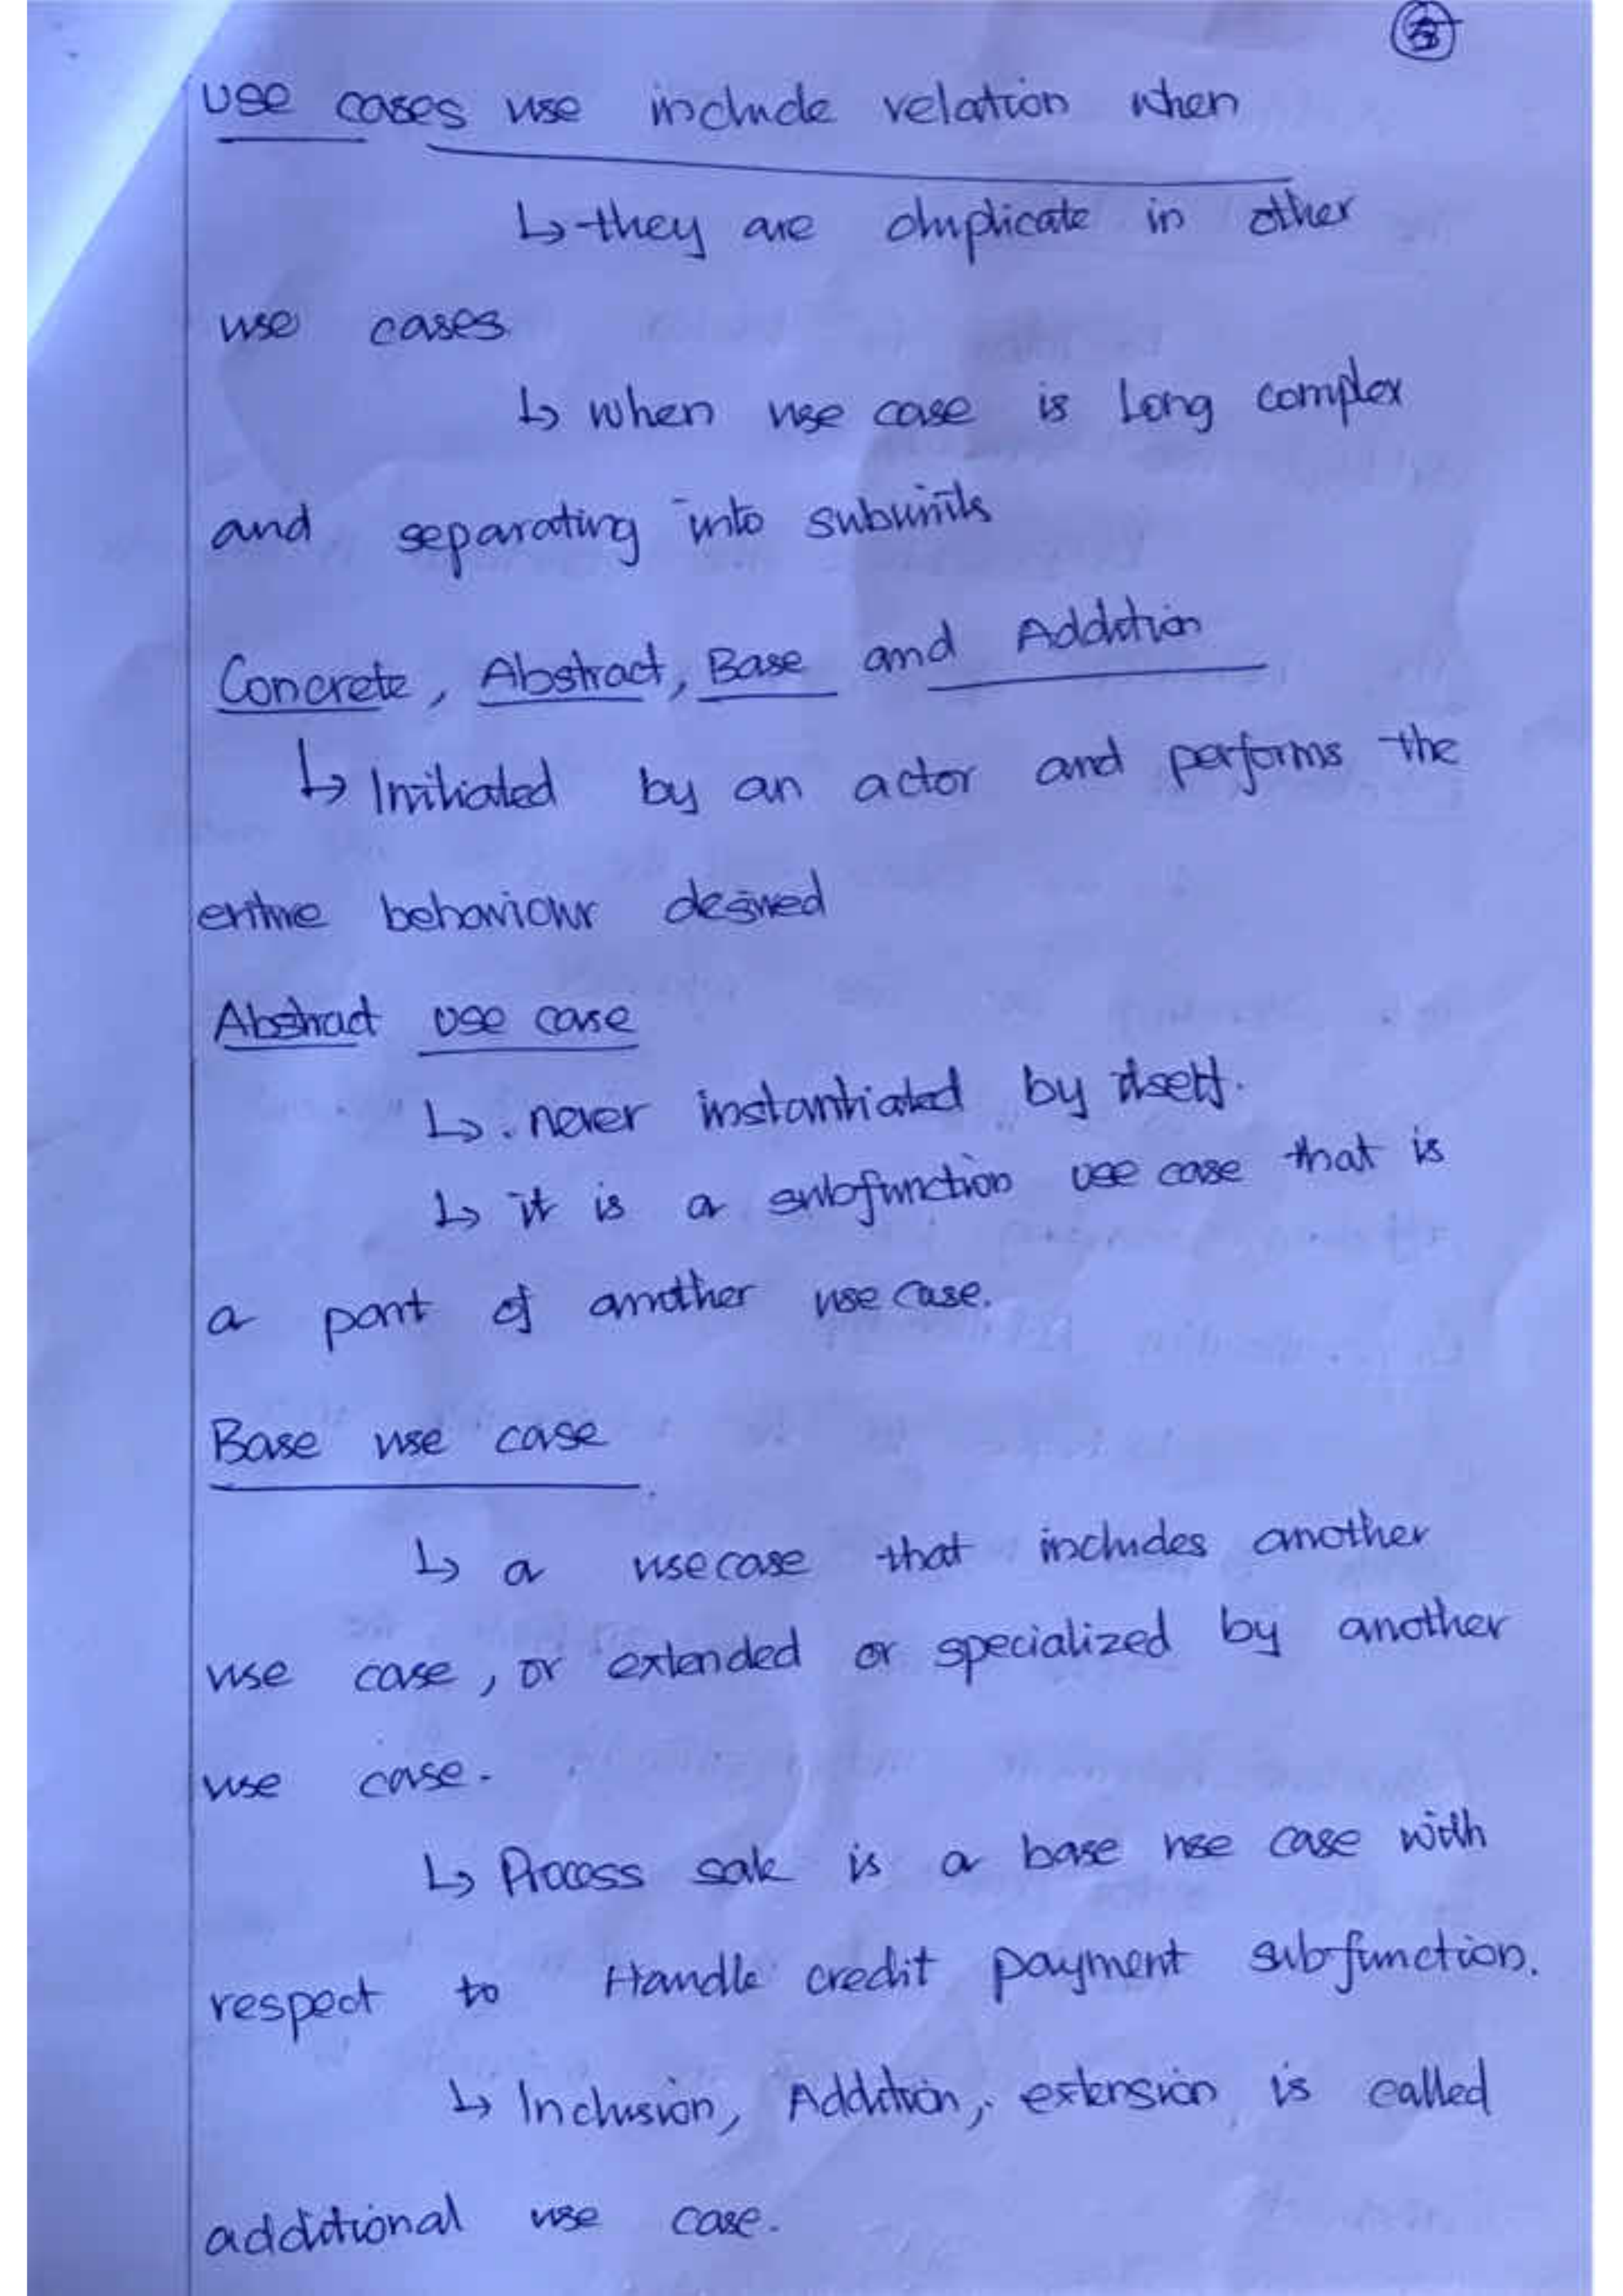 use cases use include relation when
↳ they are duplicate in other
use cases
↳ when use case is Long complex
and separating into subunits
Concrete, Abstract, Base and Addition
↳ Initiated by an actor and performs the
entire behaviour desired
Abstract use case
↳ . never instantiated by itself.
↳ it is a subfunction use case that is
a part of another use case.
Base use case
↳ a usecase that includes another
use case, or extended or specialized by another
use case.
↳ Process sale is a base use case with
respect to Handle credit payment subfunction.
↳ Inclusion, Addition, extension is called
additional use case.